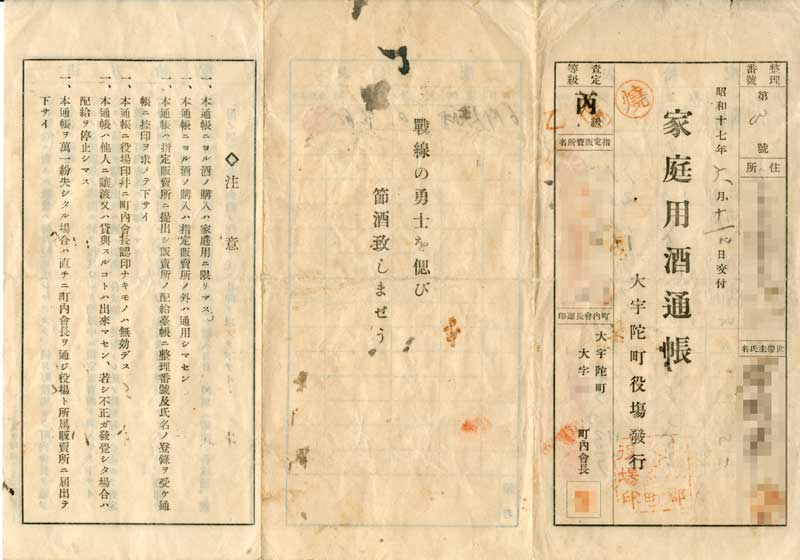 整理番號
第8號
住所
世帶主氏名
昭和十七年六月十一日交付
家庭用酒通帳
大宇陀町役場發行
燒
査定等級
丙級
乙
指定販賣所名
町內會長認印
大宇陀町
大字
町內會長
役場印
戰線の勇士を偲び
節酒致しませう
◇注意
一、本通帳ニヨル酒ノ購入ハ家庭用ニ限リマス
一、本通帳ニヨル酒ノ購入ハ指定販賣所ノ外ハ通用シマセン
一、本通帳ハ指定販賣所ニ提出シ販賣所ノ配給臺帳ニ整理番號及氏名ノ登錄ヲ受ケ通
帳ニ捺印ヲ求メラ下サイ
一、本通帳ニ役場印幷ニ町內會長認印ナキモノハ無効デス
一、本通帳ハ他人ニ讓渡又ハ貸與スルコトハ出來マセン、若シ不正ガ發覺シタ場合ハ
配給ヲ停止シマス
一、本通帳ヲ萬一紛失シタル場合ハ直チニ町內會長ヲ通ジ役場ト所属販賣所ニ届出テ
下サイ